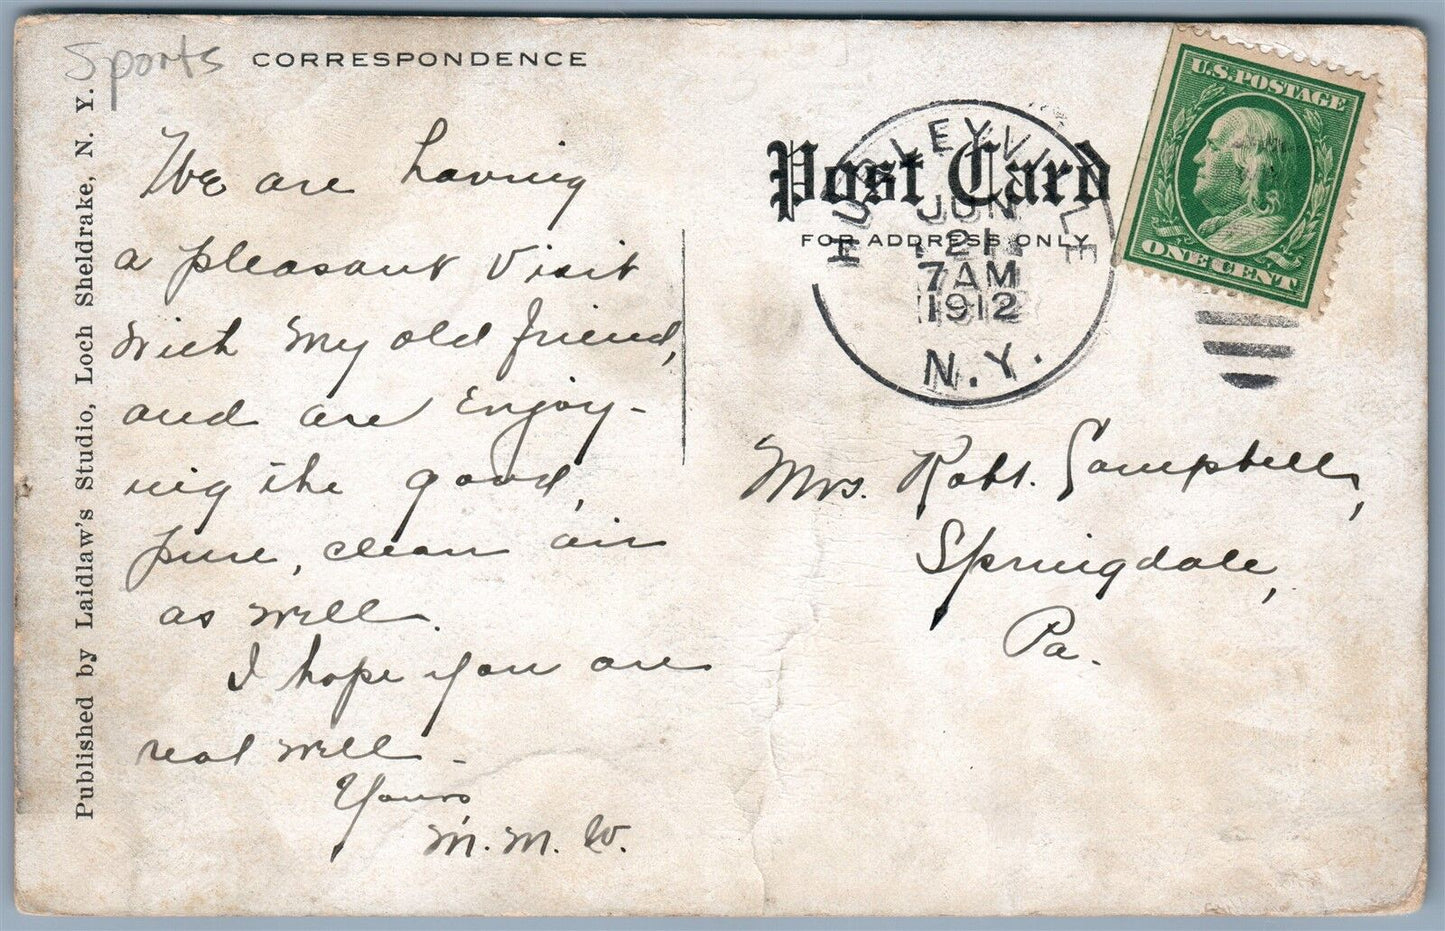 Sports
CORRESPONDENCE
We are having
a pleasant visit
with my old friend,
and are enjoy-
ing the good,
pure, clean air
as well.
I hope you are
real well -
Yours
M. M. W.
Published by Laidlaw's Studio, Loch Sheldrake, N. Y.
Post Card
FOR ADDRESS ONLY
HURLEYVILLE
JUN
21
7 AM
1912
N.Y.
U.S. POSTAGE
ONE CENT
Mrs. Robt. Campbell,
Springdale,
Pa.